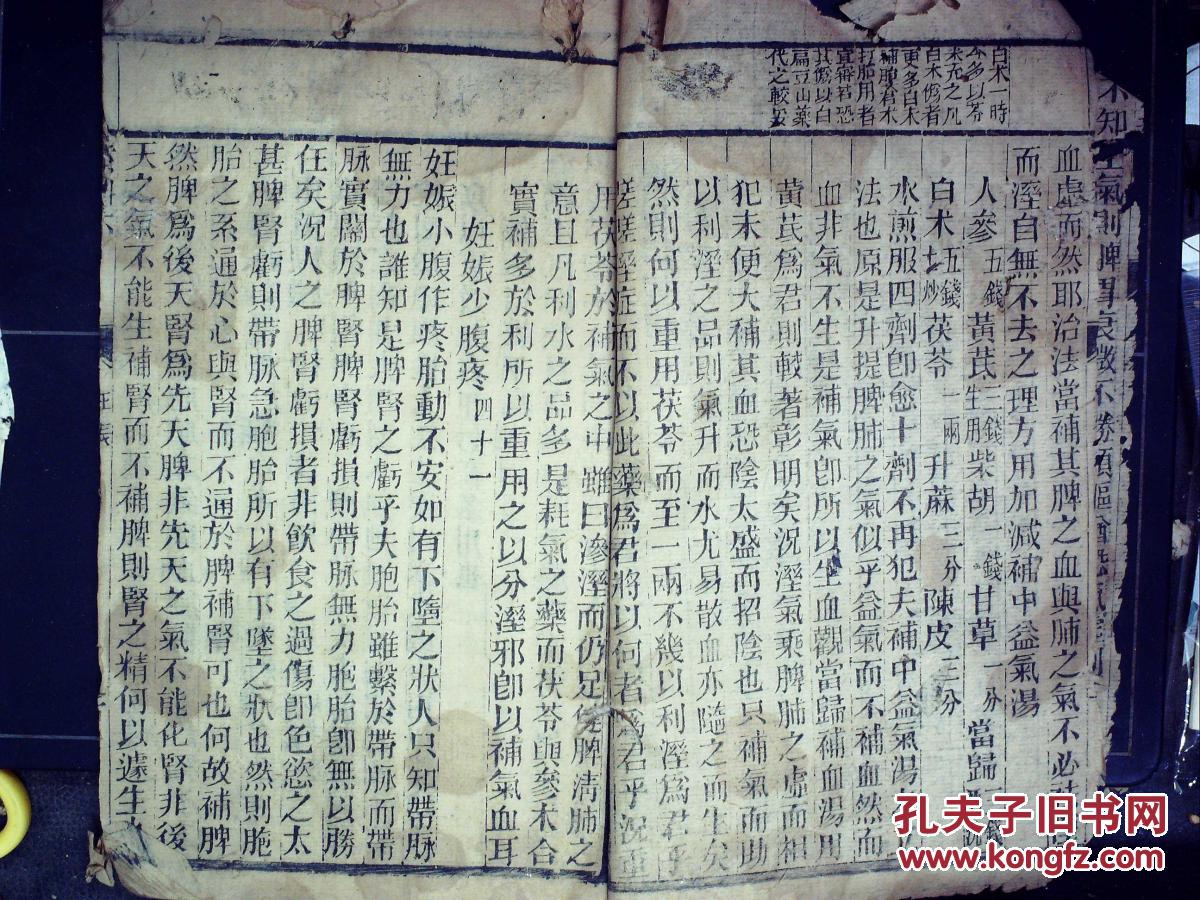 白术一時
今多以苓
术充之凡
白术價者
更多白术
補脾君术
打胎用者
宜審若恐
其價以白
扁豆山藥
代之較妥
不知 氣則脾胃衰微不
血虛而然耶治法當補其脾之血與肺之氣不必
而溼自無不去之理方用加減補中益氣湯
人參五錢黃芪三錢生用柴胡一錢甘草一分當歸
白术五錢土炒茯苓一兩升蔴三分陳皮三分
水煎服四劑卽愈十劑不再犯夫補中益氣湯
法也原是升提脾肺之氣似乎益氣而不補血然而
血非氣不生是補氣卽所以生血觀當歸補血湯用
黃芪爲君則較著彰明矣況溼氣乘脾肺之虛而相
犯未便大補其血恐陰太盛而招陰也只補氣而助
以利溼之品則氣升而水尤易散血亦隨之而生矣
然則何以重用茯苓而至一兩不幾以利溼爲君乎
嗟嗟溼症而不以此藥爲君將以何者爲君乎況重
用茯苓於補氣之中雖曰滲溼而仍足健脾淸肺之
意且凡利水之品多是耗氣之藥而茯苓與參术合
實補多於利所以重用之以分溼邪卽以補氣血耳
妊娠少腹疼四十一
妊娠小腹作疼胎動不安如有下墮之狀人只知帶脉
無力也誰知是脾腎之虧乎夫胞胎雖繫於帶脉而帶
脉實關於脾腎脾腎虧損則帶脉無力胞胎卽無以勝
任矣況人之脾腎虧損者非飮食之過傷卽色慾之太
甚脾腎虧則帶脉急胞胎所以有下墜之狀也然則胞
胎之系通於心與腎而不通於脾補腎可也何故補脾
然脾爲後天腎爲先天脾非先天之氣不能化腎非後
天之氣不能生補腎而不補脾則腎之精何以遽生
妊娠
孔夫子旧书网
www.kongfz.com